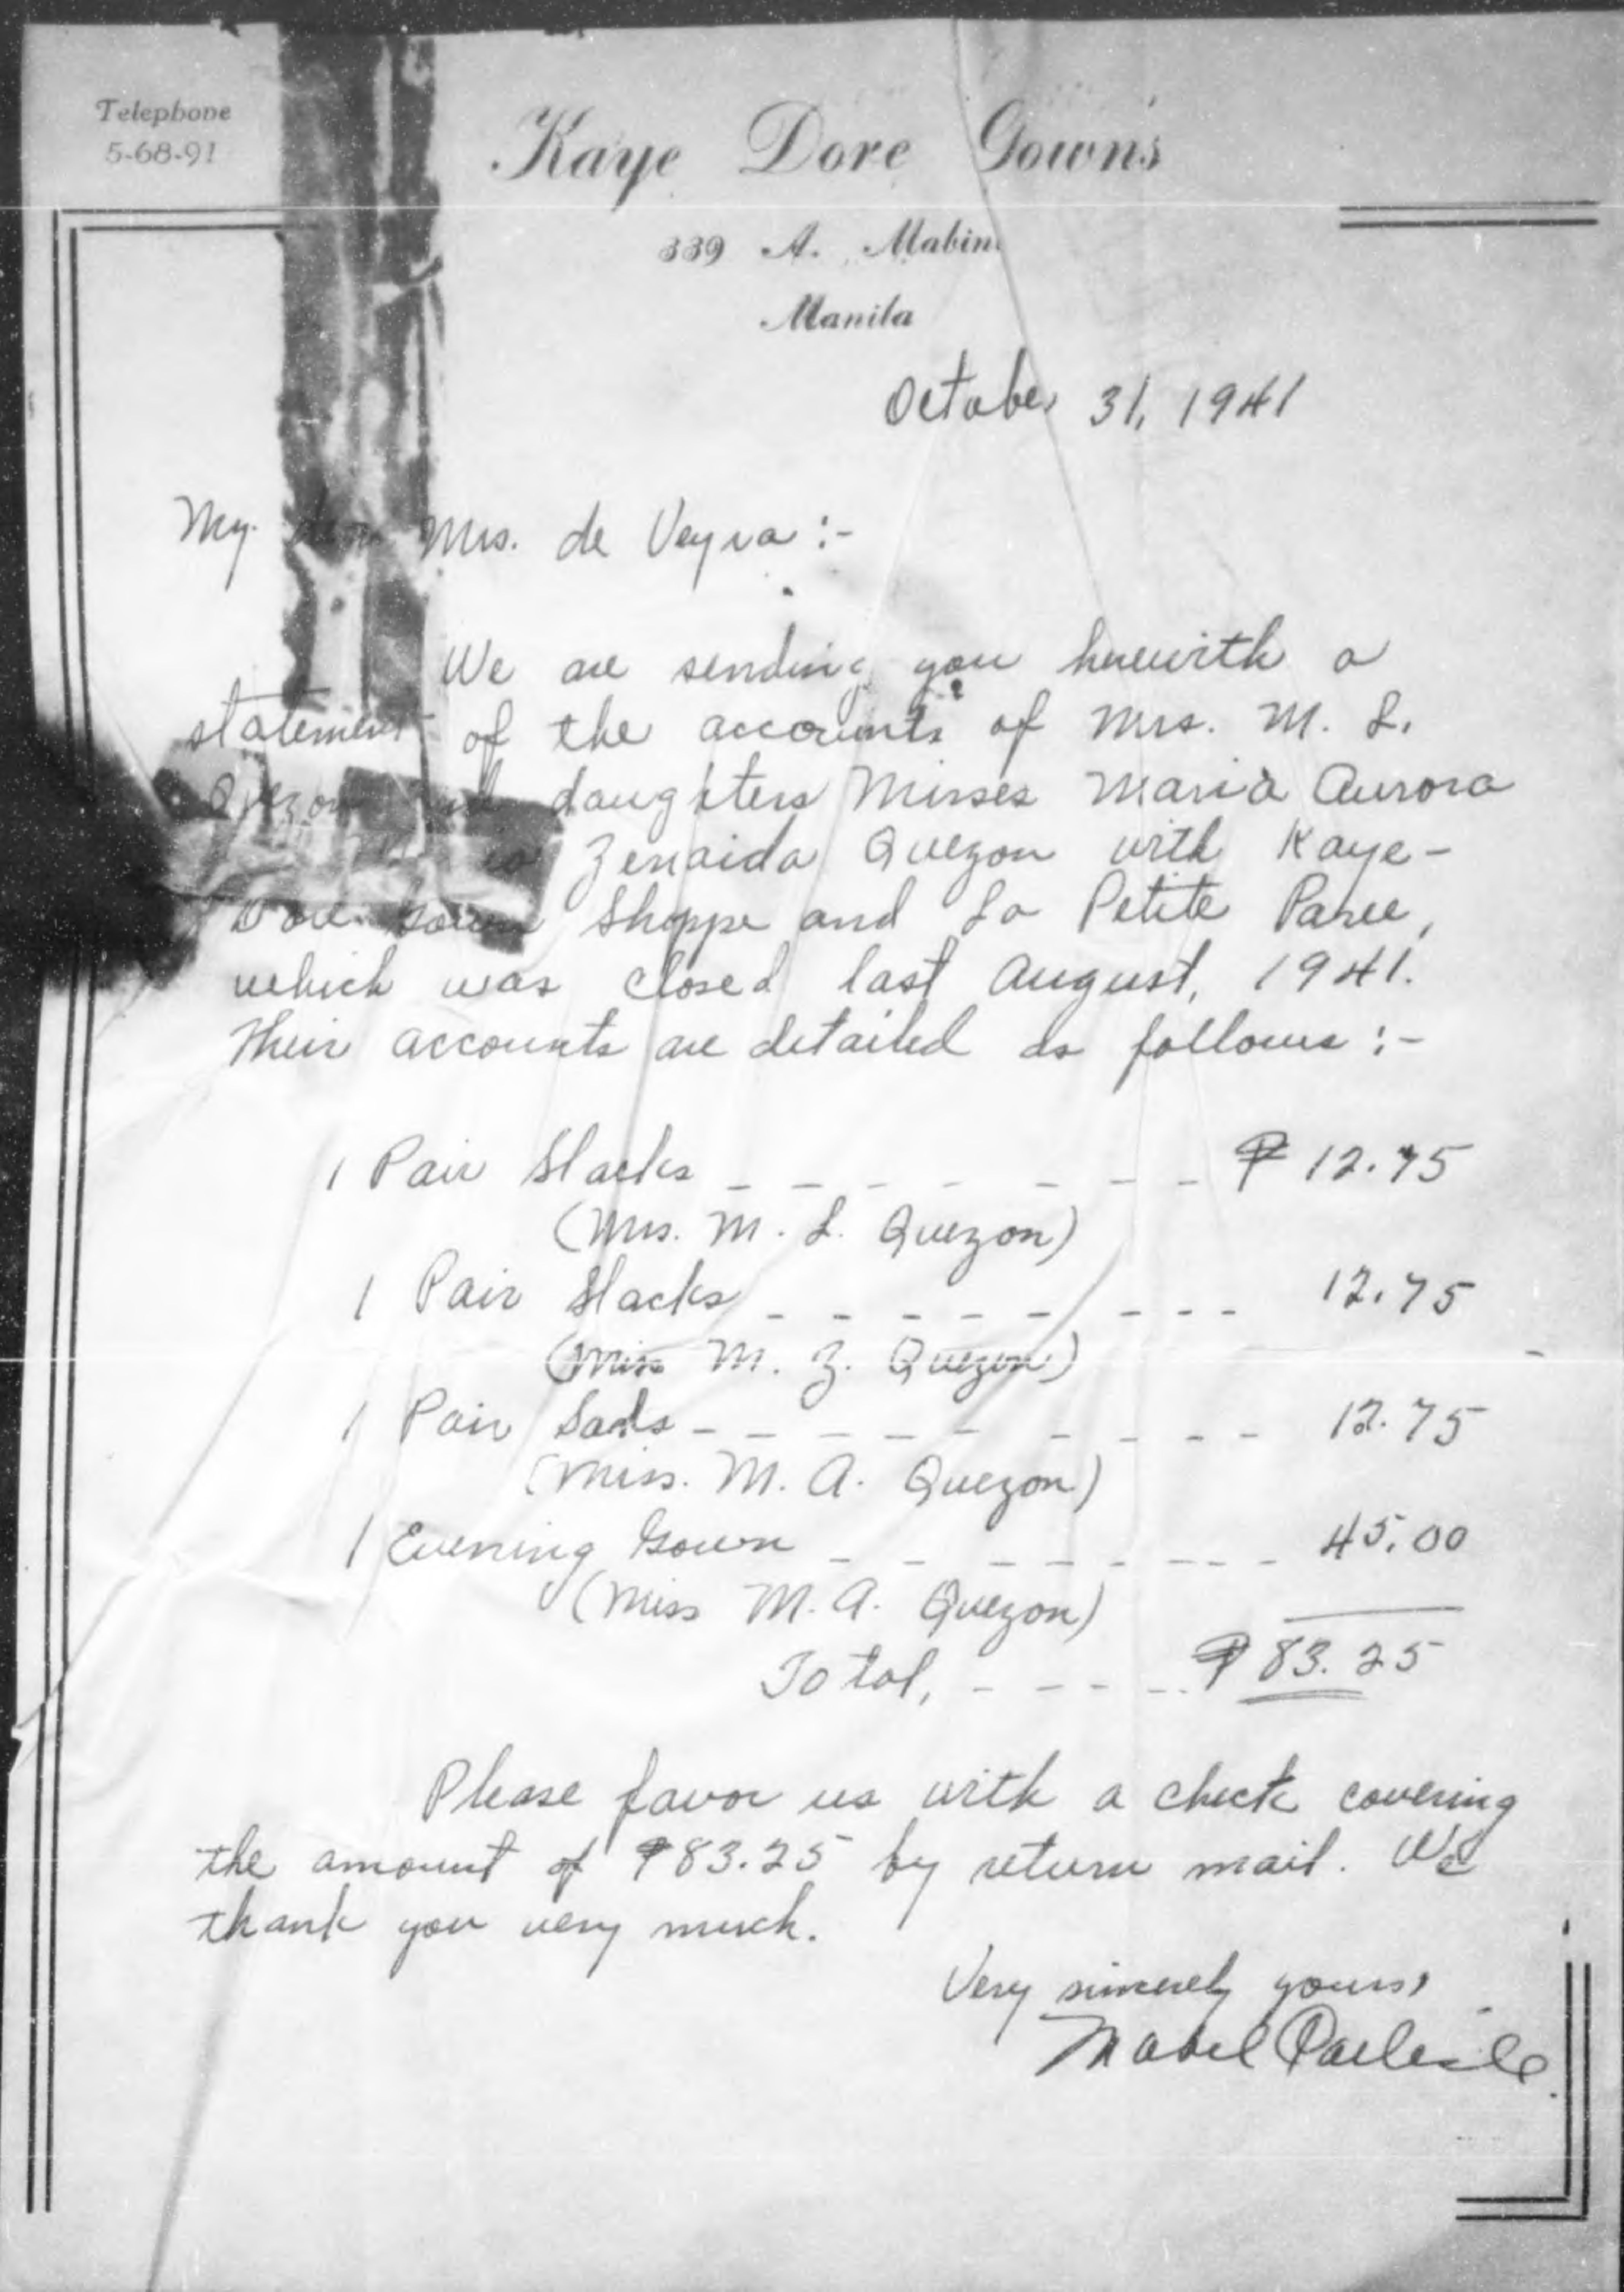 Telephone
5-68-91
Kaye Dore Gowns
339 A. Mabini
Manila
October 31, 1941
My dear Mrs. de Veyra :-
We are sending you herewith a
statement of the accounts of Mrs. M. L.
Quezon daughters Misses Maria Aurora
Zenaida Quezon with Kaye-
Dore Shoppe and La Petite Paree,
which was closed last August, 1941.
Their accounts are detailed as follows :-
1 Pair Slacks - - - - - - - ₱ 12.75
(Mrs. M. L. Quezon)
1 Pair Slacks - - - - - - - - 12.75
(Miss M. Z. Quezon)
1 Pair - - - - - - - - - 12.75
(Miss. M. A. Quezon)
1 Evening Gown - - - - - - - - 45.00
(Miss M. A. Quezon)
Total, - - - - - ₱ 83.25
Please favor us with a check covering
the amount of ₱83.25 by return mail. We
thank you very much.
Very sincerely yours,
Mabel Carlisle